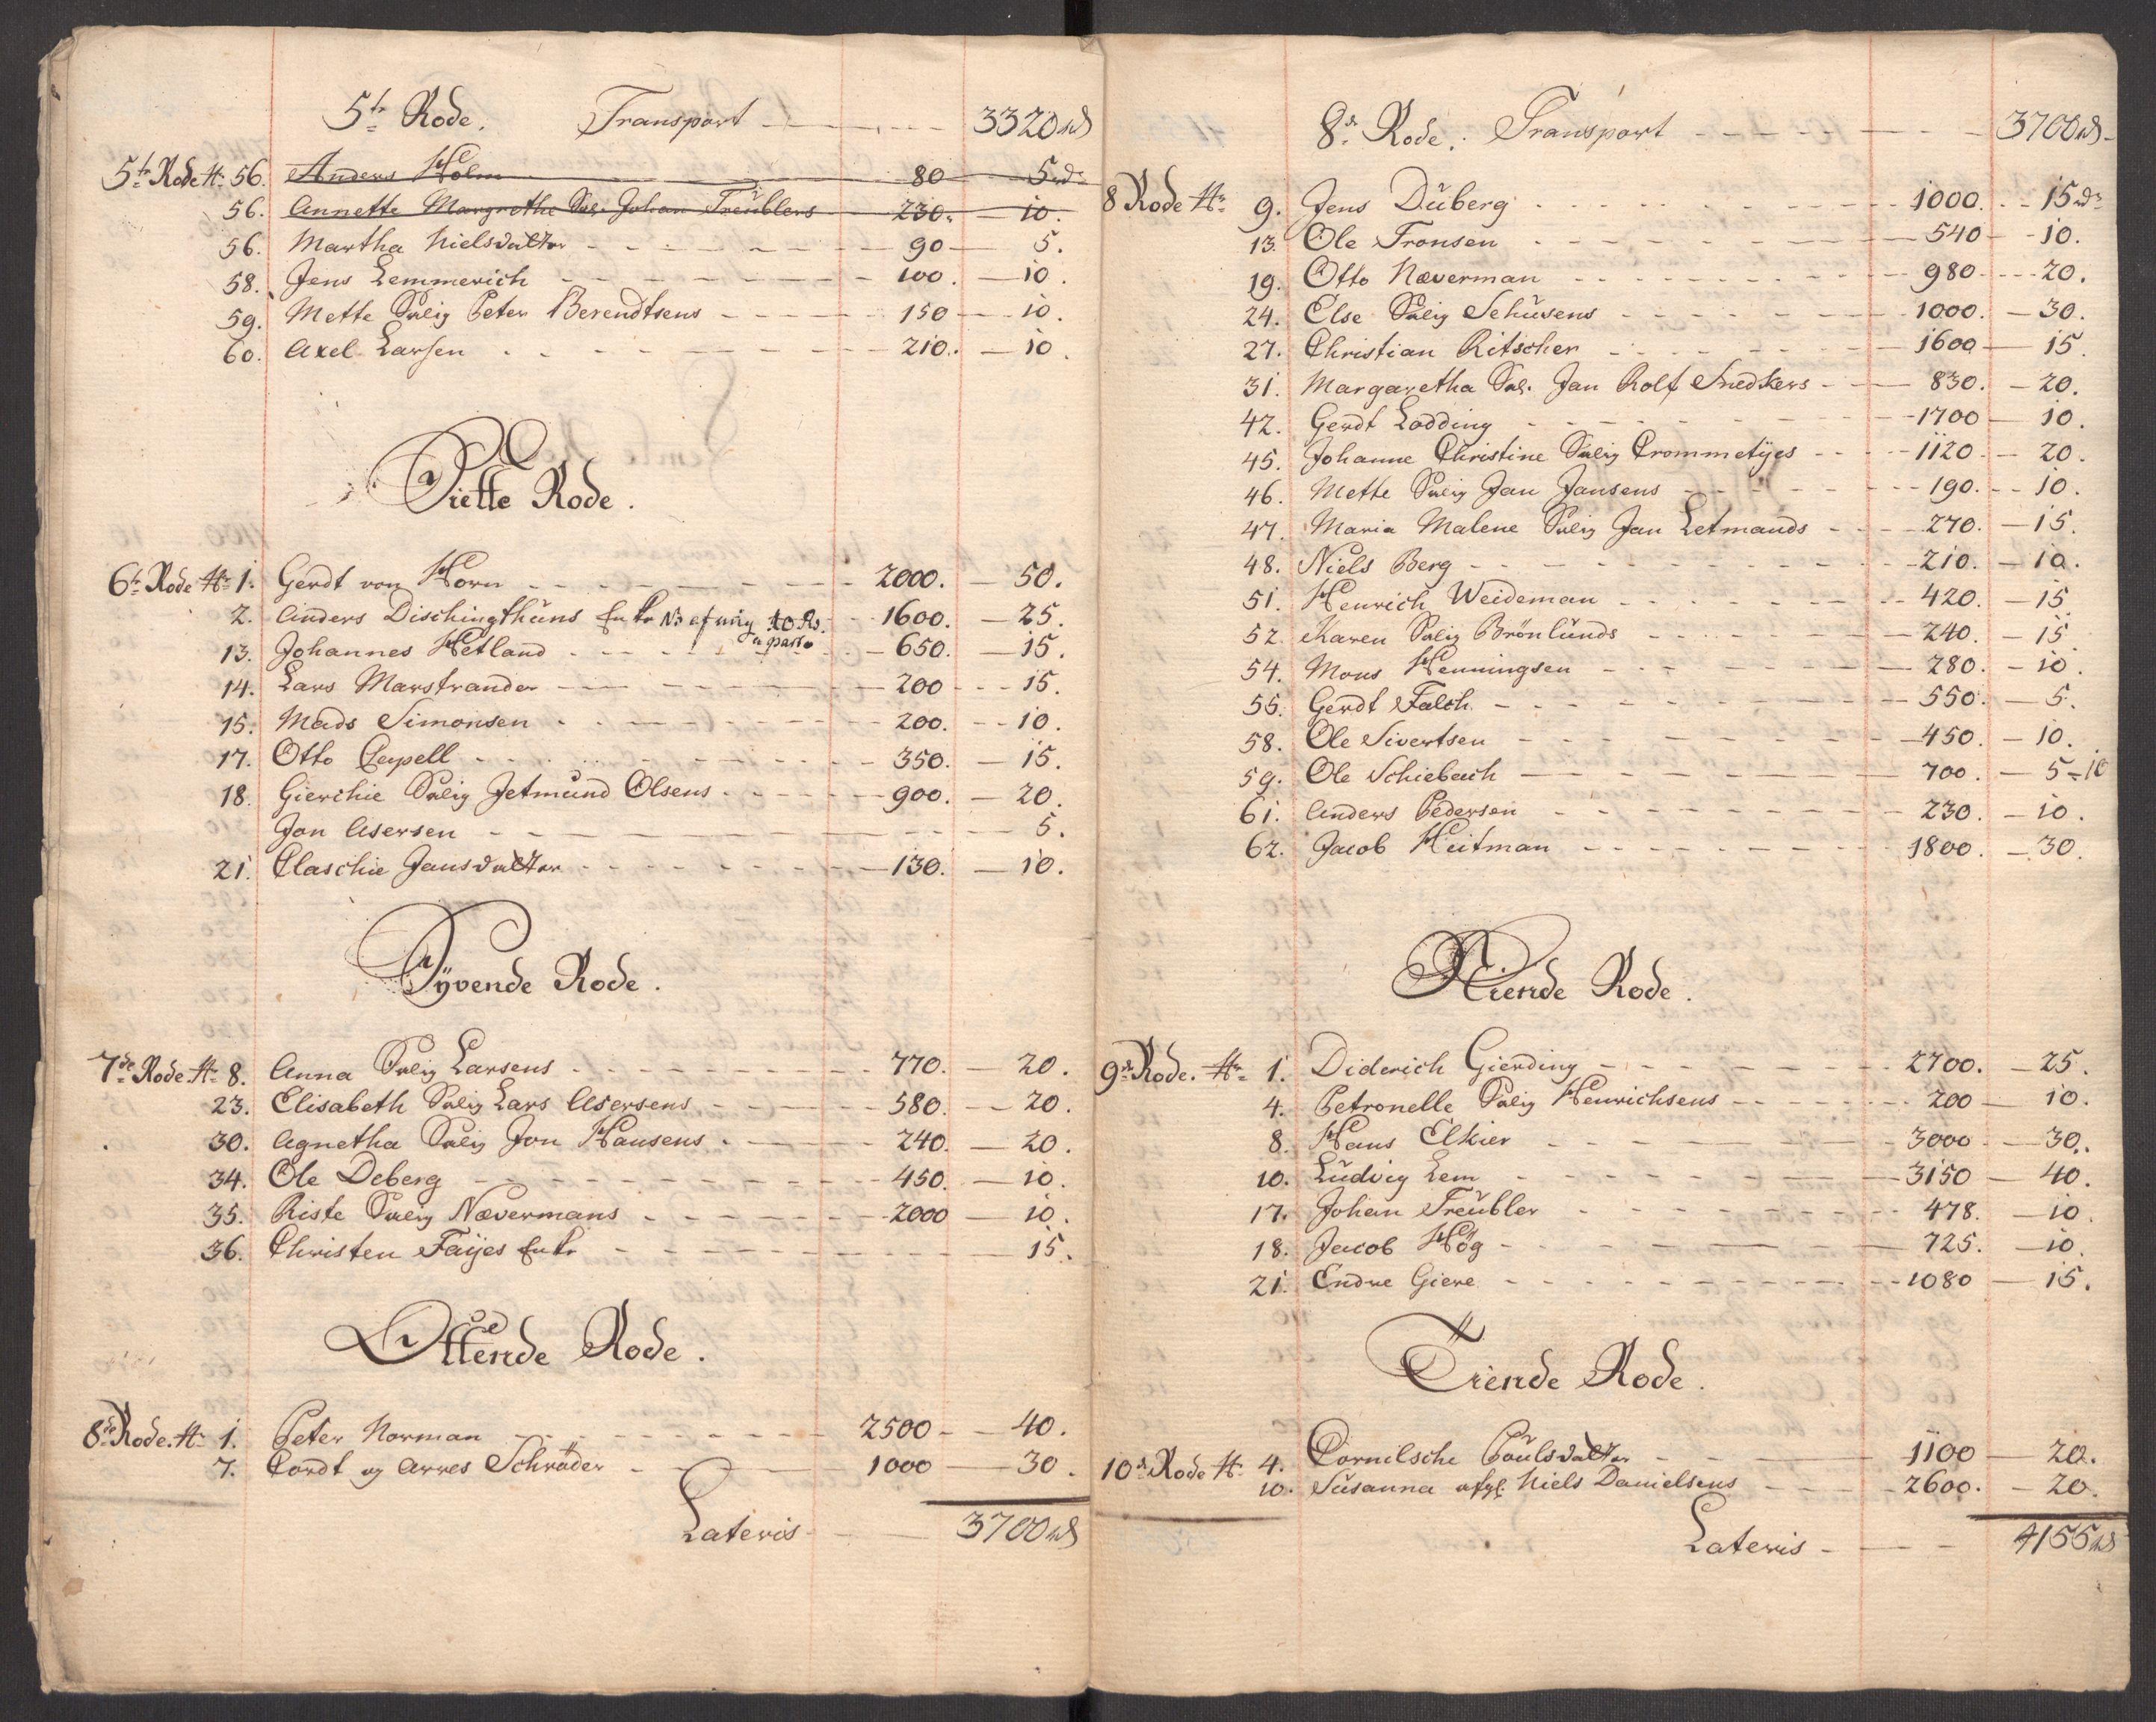 5te Rode. Transport - - - 3320 rd
5te Rode No 56. Anders Holm 80 5 rd
56. Annette Margrethe Sal. Johan Treüblers 230. 10.
56. Martha Nielsdatter 90 5.
58. Jens Lemmerich 100. 10.
59. Mette Salig Peter Berendtsens 150 10.
60. Axel Larsen 210. 10.
Siette Rode.
6te Rode No 1. Gerdt von Horn 2000. 50.
2. Anders Dischingthüns Enke 1600. 25.
13. Johannes Hetland 650. 15.
14. Lars Marstrander 200 15.
15. Mads Simonsen 200. 10.
17. Otto Capell 350. 15.
18. Gierchie Salig Jetmünd Olsens 900. 20.
Jon Asersen 5.
21. Claschie Jansdatter 130. 10.
Syvende Rode.
7de Rode. No 8. Anna Salig Larsens 770. 20.
23. Elisabeth Salig Lars Asersens 580. 20.
30. Agnetha Salig Jon Hansens 240. 20.
34. Ole Deberg 450. 10.
35. Riste Salig Nævermans 2000 10.
36. Christen Faÿes Enke 15.
Ottende Rode.
8de Rode. No 1. Peter Norman 2500 40.
7. Cordt og Arres Schröder 1000 30.
Lateris 3700 rd
8de Rode. Transport 3700 rd
8 Rode No 9. Jens Düberg 1000. 15 rd
13. Ole Tronsen 540 10.
19. Otto Næverman 980 20.
24. Else Salig Schüsens 1000. 30.
27. Christian Ritscher 1600 15.
31. Margaretha Sal. Jan Rolf Snedkers 830. 20.
42. Gerdt Lodding 1700 10.
45. Johanne Christine Salig Crommetÿes 1120 20.
46. Mette Salig Jan Jansens 190. 10.
47. Maria Malene Salig Jan Letmands 270. 15.
48. Niels Berg 210. 10.
51. Henrich Weideman 420. 15
52. Karen Salig Brönlünds 240. 15
54. Mons Henningsen 280. 10.
55. Gerdt Falch 550. 5.
58. Ole Sivertsen 450. 10.
59. Ole Schiebach 700. 5 - 10
61. Anders Pedersen 230. 10.
62. Jacob Heitman 1800. 30.
Niende Rode.
9de Rode. No 1. Diderich Gierding 2700. 25.
4. Petronelle Salig Henrichsens 200 10.
8. Hans Elkier 3000 30.
10. Lüdvig Lem 3150 40.
17. Johan Treübler 478. 10.
18. Jacob Hög 725. 10.
21. Endre Giere 1080 15.
Tiende Rode.
10de Rode No 4. Cornilsche Poülsdatter 1100 20.
10. Süsanna afgl. Niels Danielsens 2600. 20.
Lateris 4155 rd